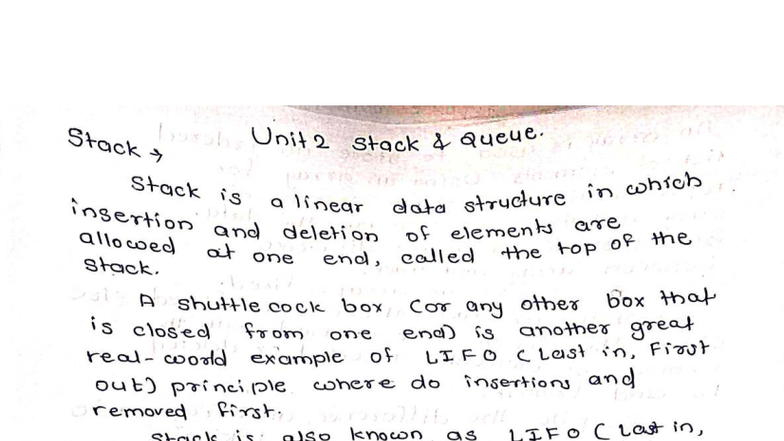 Unit 2 Stack & Queue.
Stack →
Stack is a linear data structure in which
insertion and deletion of elements are
allowed at one end, called the top of the
stack.
A shuttle cock box (or any other box that
is closed from one end) is another great
real-world example of LIFO (Last in, First
out) principle where do insertions and
removed first.
Stack is also known as LIFO (Last in,